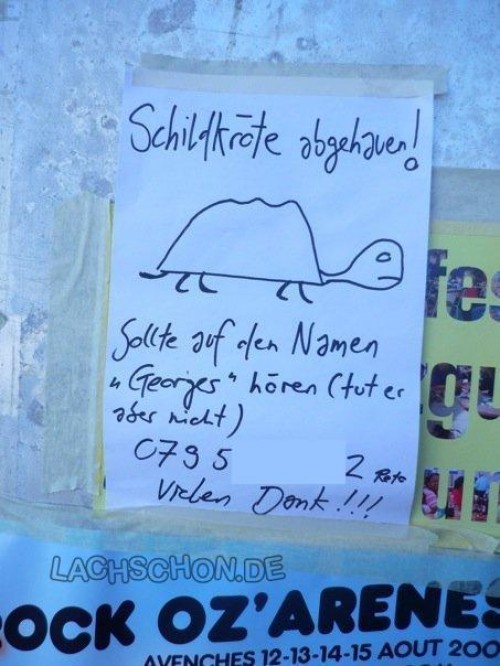 Schildkröte abgehauen!
Sollte auf den Namen
"Georges" hören (tut er
aber nicht)
0795 2 Reto
Vielen Dank!!!
LACHSCHON.DE
ROCK OZ'ARENES
AVENCHES 12-13-14-15 AOUT 200